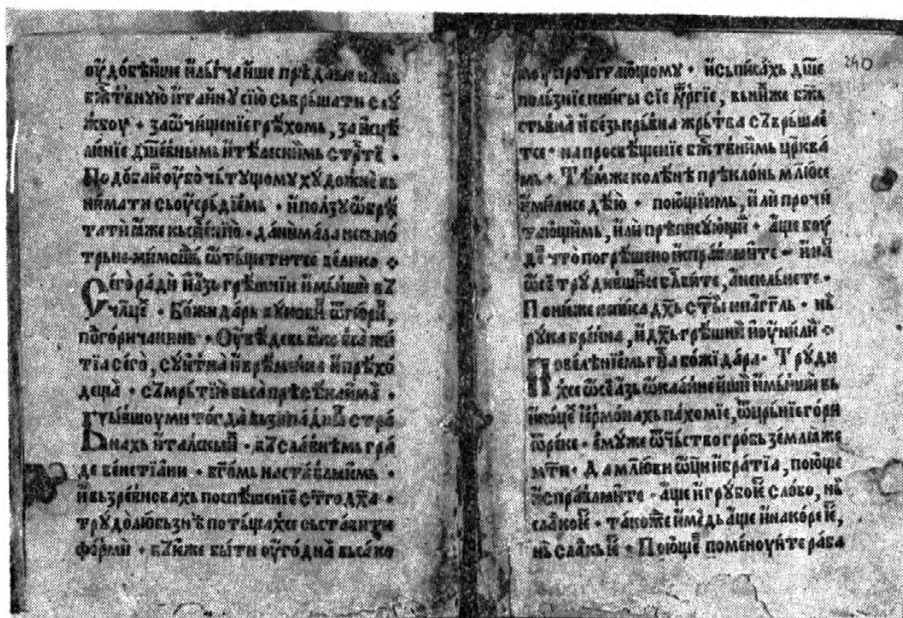 оудобѣиіе и льгчаише прѣдавы намь
бж҃твн꙽ую и таину сїю сьврьшати слѹ
жбоу · за ѡчищенїе грѣхомь, за исцѣ
ленїе дш҃евнымь и тѣлескимь
Подобаи оубо чьтущому художнѣ вь
нимати сь оусрьдїемь · и ползу ѡбрѣ
тати
велико
Сего ради и азь грѣшнїи и мьншїи вь
Божидарь вуковиќ ѿ гюриќ,
подгоричанинь · Оувѣдевь
тїа сего, суетнаа и врѣменнаа и прѣхо
деща · сьмрьтїю вьса прѣсѣкаима ·
Бывшоу ми тогда вь западныхь стра
нахь италскыи · вь славнѣмь гра
де венетїани · бг҃омь наставлꙗемь ·
и възревновахь поспѣшенїе ст҃го дх҃а ·
трудолюбьзнѣ потьщахсе сьставити
форми · быти оугодна вьсако
240
моу прочитающому · и сьписахь дш҃е
пользнїе книгы сїе лѵргїе, вь ниже бж҃ь
ствьнаа и безькрьвна жрьтва сьврьшает
тсе · на просвѣщенїе бж҃твнимь црьква
мь · Тѣмже колѣнѣ прѣклонь млюсе
и милисе дѣю · поющїимь, или прочи
тающимь, или прѣписуюќи · аще боу
де что погрѣшено исправлꙗите · и на
трудившїисе бл҃вите, а не кльнете ·
Понюже не писа дх҃ь ст҃ы ни агг҃ль · нь
рука брѣнна, и дх҃ь грѣшнїи и оунили
Повелѣнїемь г҃на божидара · Труди
хсе ѡ сем азь ѡкааннеишїи и мьншїи вь
иноцѣ їермонахь пахомїе, ѿ црьнїе гори
ѿ реке · емуже ѿчьство гробь землꙗ же
мт҃и · Да млю ви ѿци и братїа, поюще
исправлꙗите · аще и грубо ѥ слово, нь
сладко ѥ · такожде и медь аще и на коре ѥ,
нь сладкь ѥ · Поюще поменоуите раба